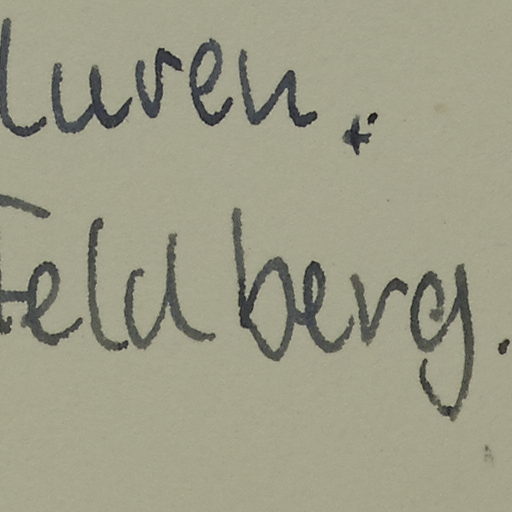 luren.
Feldberg.